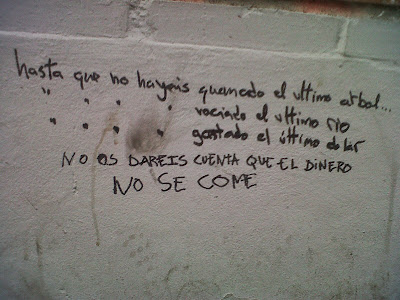 hasta que no hayais quemado el ultimo arbol...
" " " " vaciado el ultimo rio
" " " " gastado el último dolar
NO OS DAREIS CUENTA QUE EL DINERO
NO SE COME